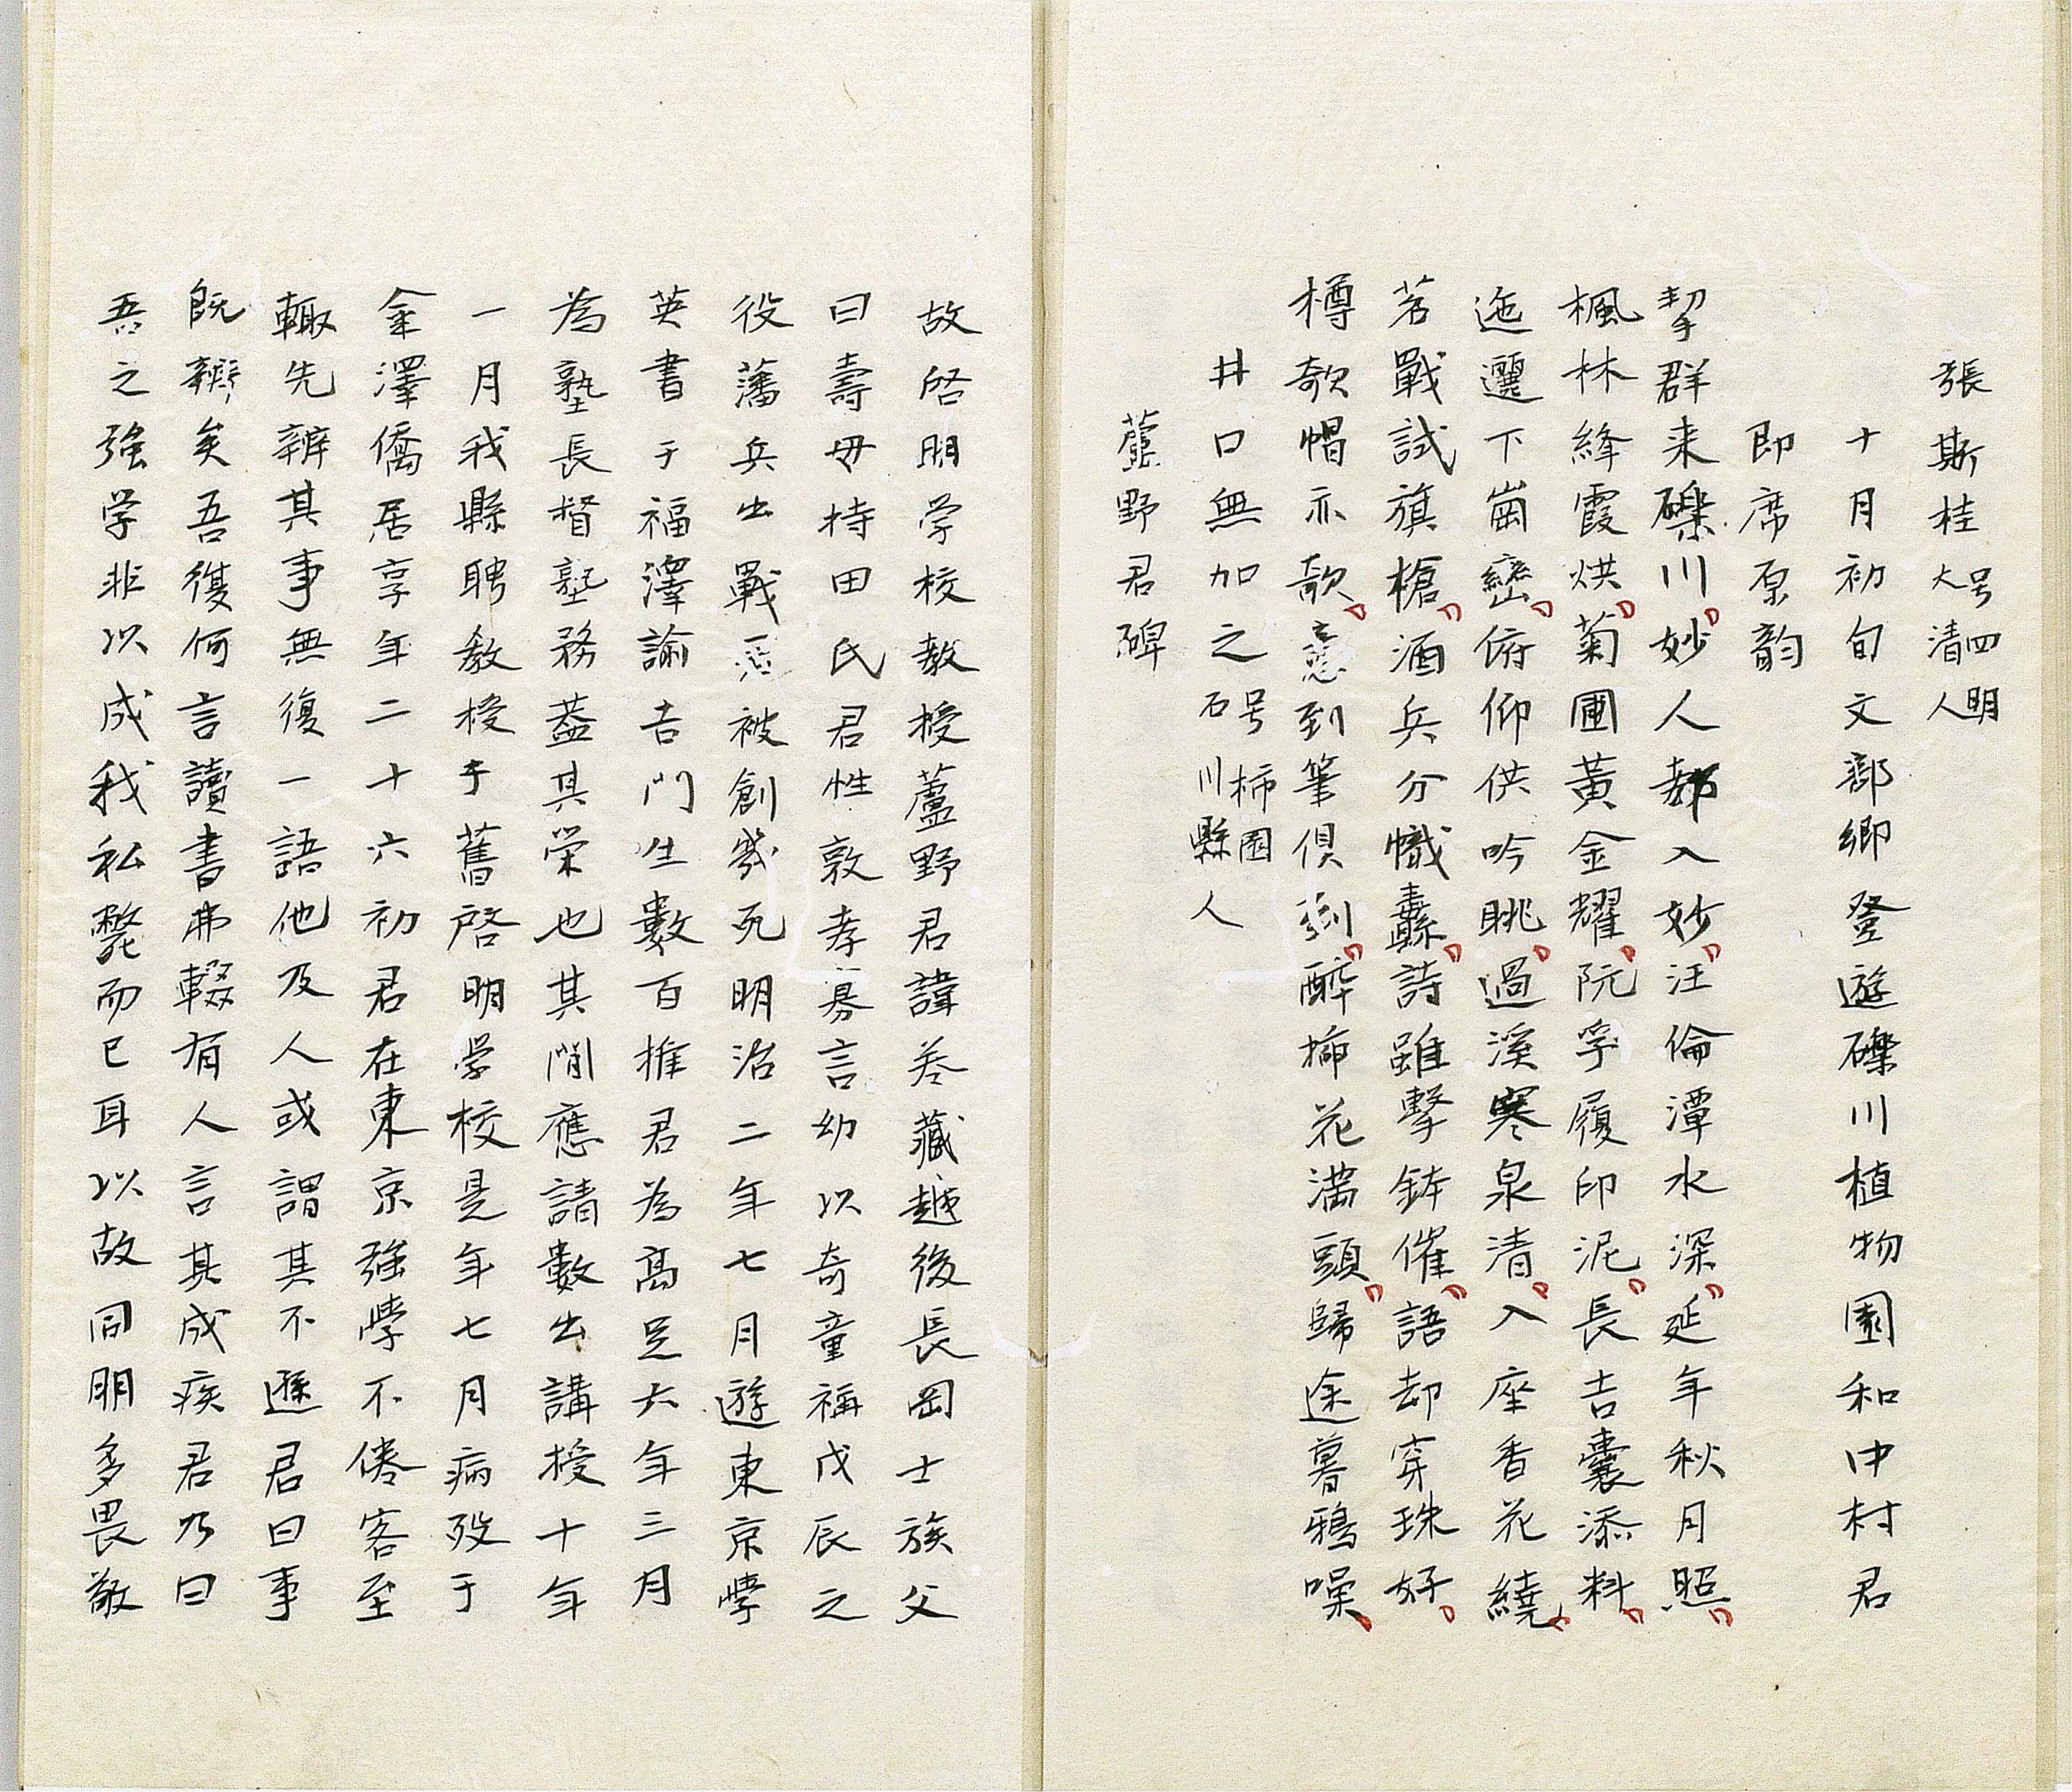 張斯桂号四明大清人
十月初旬文部卿登遊礫川植物園和中村君
即席原韵
挈群来礫川妙人都入妙汪倫潭水深延年秋月照
楓林絳霞烘菊圃黃金耀阮孚履印泥長吉囊添料
迤邐下崗巒俯仰供吟眺過溪寒泉清入座香花繞
茗戰試旗槍酒兵分幟纛詩雖擊鉢催語却穿珠好
樽欹帽亦欹意到筆俱到醉挿花満頭歸途暮鴉噪
井口無加之号柿園石川縣人
蘆野君碑
故啓明学校教授蘆野君諱巻藏越後長岡士族父
曰壽母持田氏君性敦孝寡言幼以奇童稱戊辰之
役藩兵出戰君被創幾死明治二年七月遊東京學
英書于福澤諭吉門生數百推君為高足六年三月
為塾長督塾務葢其榮也其間應請數出講授十年
一月我縣聘教授于舊啓明学校是年七月病歿于
金澤僑居享年二十六初君在東京強學不倦客至
輒先辨其事無復一語他及人或謂其不遜君曰事
既辨矣吾復何言讀書弗輟有人言其成疾君乃曰
吾之強学非以成我私斃而已耳以故同朋多畏敬